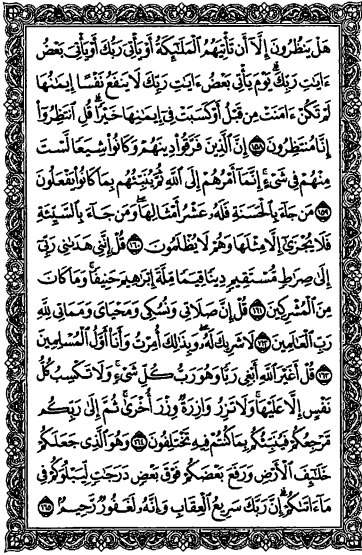 هَلْ يَنظُرُونَ إِلَّآ أَن تَأْتِيَهُمُ ٱلْمَلَـٰٓئِكَةُ أَوْ يَأْتِىَ رَبُّكَ أَوْ يَأْتِىَ بَعْضُ
ءَايَـٰتِ رَبِّكَ ۗ يَوْمَ يَأْتِى بَعْضُ ءَايَـٰتِ رَبِّكَ لَا يَنفَعُ نَفْسًا إِيمَـٰنُهَا
لَمْ تَكُنْ ءَامَنَتْ مِن قَبْلُ أَوْ كَسَبَتْ فِىٓ إِيمَـٰنِهَا خَيْرًا ۗ قُلِ ٱنتَظِرُوٓا۟
إِنَّا مُنتَظِرُونَ ١٥٨ إِنَّ ٱلَّذِينَ فَرَّقُوا۟ دِينَهُمْ وَكَانُوا۟ شِيَعًا لَّسْتَ
مِنْهُمْ فِى شَىْءٍ ۚ إِنَّمَآ أَمْرُهُمْ إِلَى ٱللَّهِ ثُمَّ يُنَبِّئُهُم بِمَا كَانُوا۟ يَفْعَلُونَ
١٥٩ مَن جَآءَ بِٱلْحَسَنَةِ فَلَهُۥ عَشْرُ أَمْثَالِهَا ۖ وَمَن جَآءَ بِٱلسَّيِّئَةِ
فَلَا يُجْزَىٰٓ إِلَّا مِثْلَهَا وَهُمْ لَا يُظْلَمُونَ ١٦٠ قُلْ إِنَّنِى هَدَىٰنِى رَبِّىٓ
إِلَىٰ صِرَٰطٍ مُّسْتَقِيمٍ دِينًا قِيَمًا مِّلَّةَ إِبْرَٰهِيمَ حَنِيفًا ۚ وَمَا كَانَ
مِنَ ٱلْمُشْرِكِينَ ١٦١ قُلْ إِنَّ صَلَاتِى وَنُسُكِى وَمَحْيَاىَ وَمَمَاتِى لِلَّهِ
رَبِّ ٱلْعَـٰلَمِينَ ١٦٢ لَا شَرِيكَ لَهُۥ ۖ وَبِذَٰلِكَ أُمِرْتُ وَأَنَا۠ أَوَّلُ ٱلْمُسْلِمِينَ
١٦٣ قُلْ أَغَيْرَ ٱللَّهِ أَبْغِى رَبًّا وَهُوَ رَبُّ كُلِّ شَىْءٍ ۚ وَلَا تَكْسِبُ كُلُّ
نَفْسٍ إِلَّا عَلَيْهَا ۚ وَلَا تَزِرُ وَازِرَةٌ وِزْرَ أُخْرَىٰ ۚ ثُمَّ إِلَىٰ رَبِّكُم
مَّرْجِعُكُمْ فَيُنَبِّئُكُم بِمَا كُنتُمْ فِيهِ تَخْتَلِفُونَ ١٦٤ وَهُوَ ٱلَّذِى جَعَلَكُمْ
خَلَـٰٓئِفَ ٱلْأَرْضِ وَرَفَعَ بَعْضَكُمْ فَوْقَ بَعْضٍ دَرَجَـٰتٍ لِّيَبْلُوَكُمْ فِى
مَآ ءَاتَىٰكُمْ ۗ إِنَّ رَبَّكَ سَرِيعُ ٱلْعِقَابِ وَإِنَّهُۥ لَغَفُورٌ رَّحِيمٌۢ ١٦٥